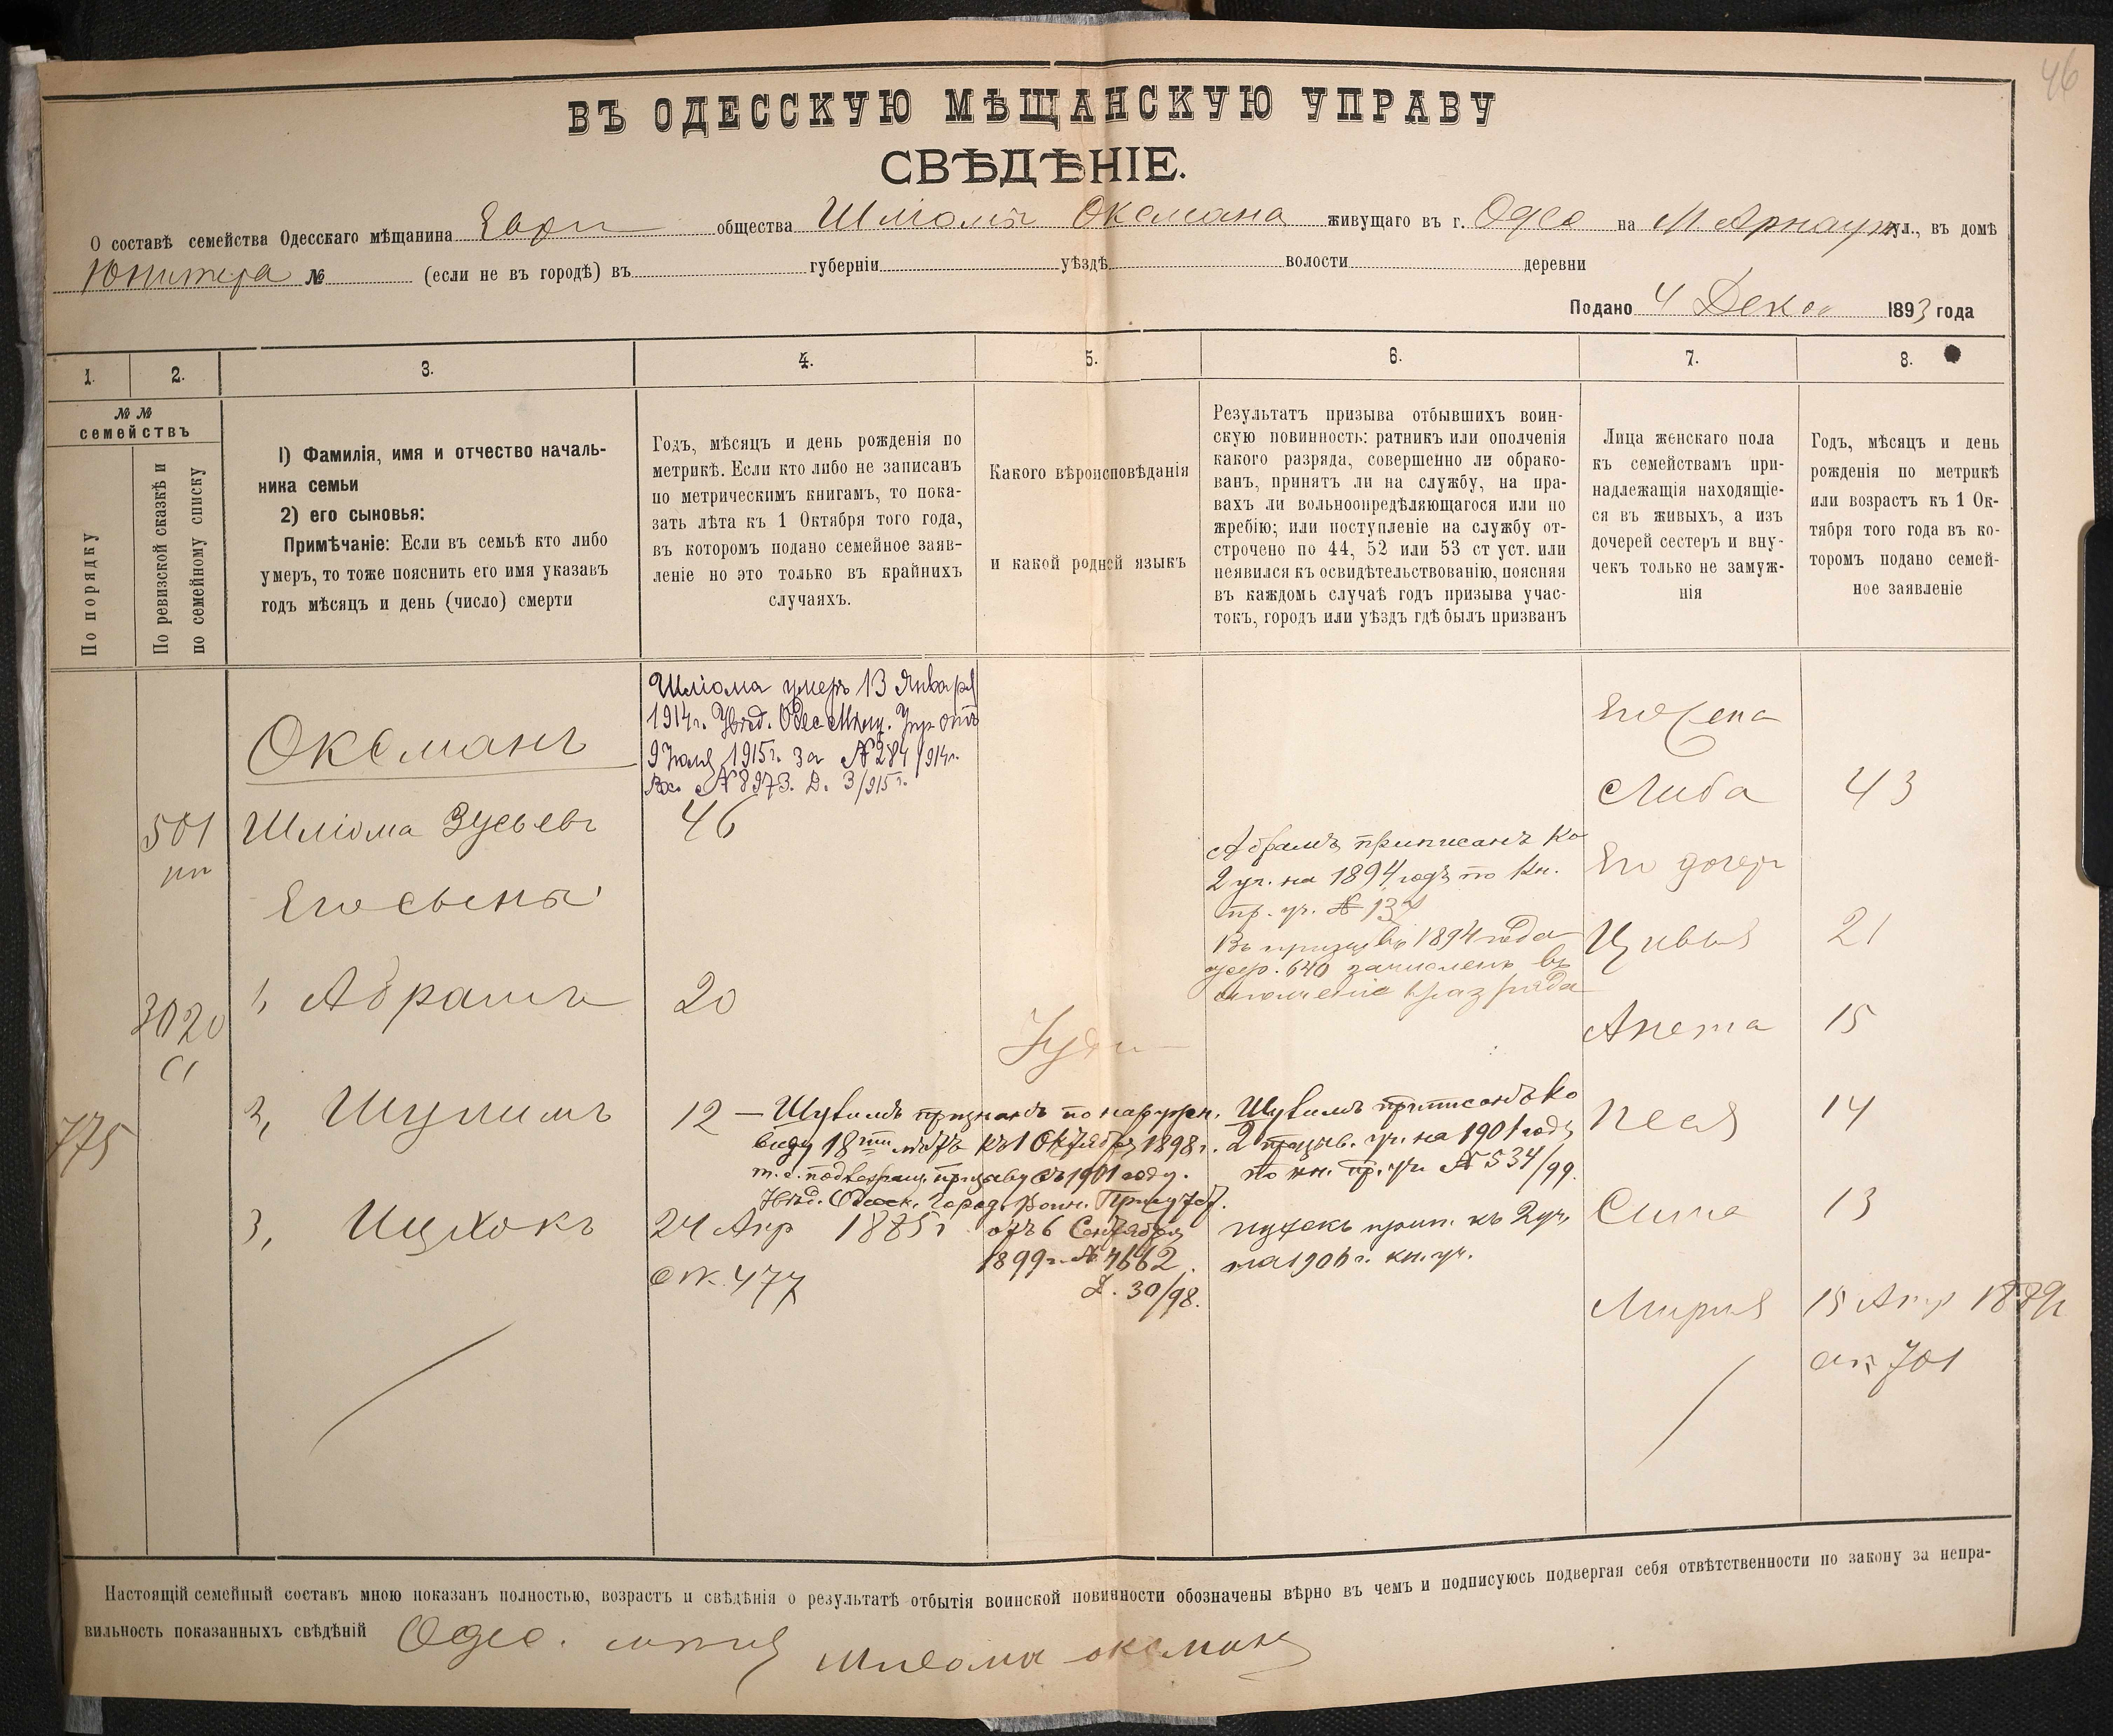 46
ВЪ ОДЕССКУЮ МѢЩАНСКУЮ УПРАВУ
СВѢДѢНІЕ.
О составѣ семейства Одесскаго мѣщанина Евре общества Шліома Оксмана живущаго въ г. Одес на М. Арнаут ул., въ домѣ
Юпитера № (если не въ городѣ) въ губерніи уѣздѣ волости деревни
Подано 4 Дек 1893 года
1. 2. 3. 4. 5. 6. 7. 8.
№№ семействъ
По порядку
По ревизской сказкѣ и
по семейному списку
1) Фамилія, имя и отчество началь-
ника семьи
2) его сыновья:
Примѣчаніе: Если въ семьѣ кто либо
умеръ, то тоже пояснить его имя указавъ
годъ мѣсяцъ и день (число) смерти
Годъ, мѣсяцъ и день рожденія по
метрикѣ. Если кто либо не записанъ
по метрическимъ книгамъ, то пока-
зать лѣта къ 1 Октября того года,
въ которомъ подано семейное заяв-
леніе но это только въ крайнихъ
случаяхъ.
Какого вѣроисповѣданія
и какой родной языкъ
Результатъ призыва отбывшихъ воин-
скую повинность: ратникъ или ополченія
какого разряда, совершенно ли обрако-
ванъ, принятъ ли на службу, на пра-
вахъ ли вольноопредѣляющагося или по
жребію; или поступленіе на службу от-
строчено по 44, 52 или 53 ст уст. или
неявился къ освидѣтельствованію, поясняя
въ каждомъ случаѣ годъ призыва учас-
токъ, городъ или уѣздъ гдѣ былъ призванъ
Лица женскаго пола
къ семействамъ при-
надлежащія находящіе-
ся въ живыхъ, а изъ
дочерей сестеръ и вну-
чекъ только не замуж-
нія
Годъ, мѣсяцъ и день
рожденія по метрикѣ
или возрастъ къ 1 Ок-
тября того года въ ко-
торомъ подано семей-
ное заявленіе
775
501
3020
Оксманъ
Шліома Зусьевъ
Его сыны
1, Абрамъ
2, Шулимъ
3, Ицхокъ
Шліома умеръ 13 Января
1914 г. Увѣд. Одес Мѣщ. Упр отъ
9 Іюля 1915 г. за №284/914 г.
Вх. №8973. Д. 3/915 г.
46
20
12 – Шулимъ признанъ по наружн.
виду 18ти лѣтъ къ 1 Октября 1898 г.
т.е. подлежащ. призыву въ 1901 году.
Увѣд. Одесск. Город. Воин. Присут.
отъ 6 Сентября
1899 г. № 4662.
Д. 30/98.
24 Апр 1885 г
ак. 477
Іудей
Абрамъ приписанъ ко
2 уч. на 1894 годъ по кн.
пр. уч. № 137
Въ призывъ 1894 года
жер. 640 зачисленъ въ
ополченіе разряда
Шулимъ приписанъ ко
2 призыв. уч. на 1901 годъ
по кн. пр. уч № 534/99.
Ицхокъ прип. къ 2 уч.
на 1906 г. кн. уч.
Его жена
Либа 43
Его дочери
Цивья 21
Анета 15
Песя 14
Сима 13
Мирия 15 Апр 1889 г
ак 701
Настоящій семейный составъ мною показанъ полностью, возрастъ и свѣдѣнія о результатѣ отбытія воинской повинности обозначены вѣрно въ чемъ и подписуюсь подвергая себя отвѣтственности по закону за непра-
вильность показанныхъ свѣдѣній Одес. Шлеома оксманъ